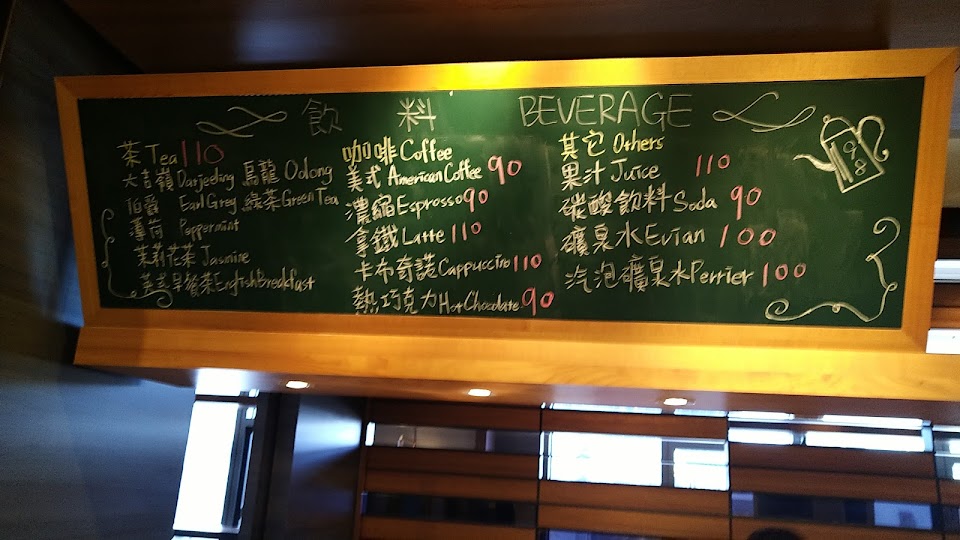 飲 料 BEVERAGE
茶 Tea 110
大吉嶺 Darjeeling 烏龍 Oolong
伯爵 Earl Grey 綠茶 Green Tea
薄荷 Peppermint
茉莉花茶 Jasmine
英式早餐茶 English Breakfast
咖啡 Coffee
美式 American Coffee 90
濃縮 Espresso 90
拿鐵 Latte 110
卡布奇諾 Cappuccino 110
熱巧克力 Hot Chocolate 90
其它 Others
果汁 Juice 110
碳酸飲料 Soda 90
礦泉水 Evian 100
汽泡礦泉水 Perrier 100
98